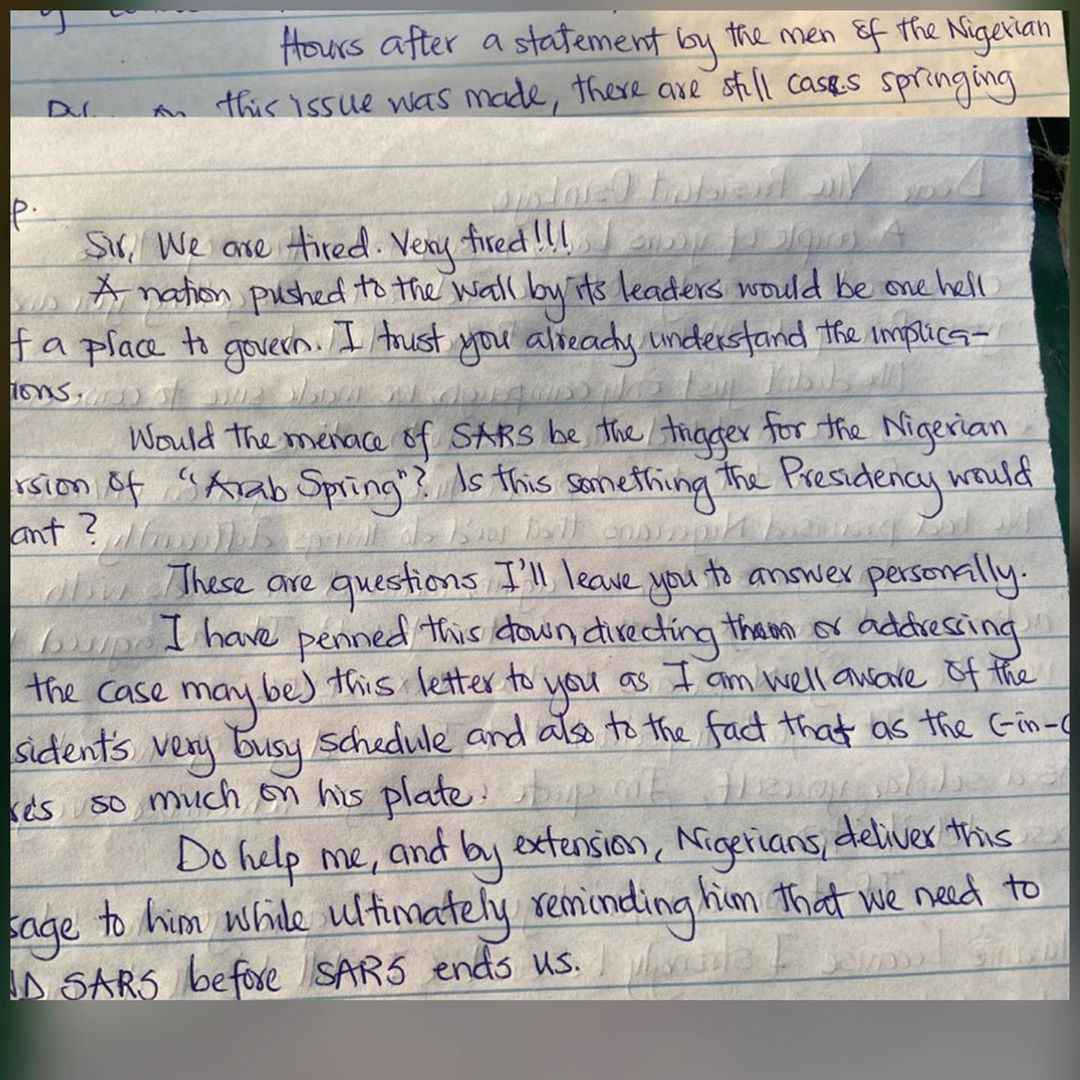 Hours after a statement by the men of the Nigerian
this issue was made, there are still cases springing
p.
Sir, We are tired. Very tired!!!
A nation pushed to the wall by its leaders would be one hell
f a place to govern. I trust you already understand the implica-
ions.
Would the menace of SARS be the trigger for the Nigerian
rsion of "Arab Spring"? Is this something the Presidency would
ant?
These are questions I'll leave you to answer personally.
I have penned this down, directing them or addressing
the case may be) this letter to you as I am well aware of the
sident's very busy schedule and also to the fact that as the C-in-C
so much on his plate.
Do help me, and by extension, Nigerians, deliver this
sage to him while ultimately reminding him that we need to
ND SARS before SARS ends us.